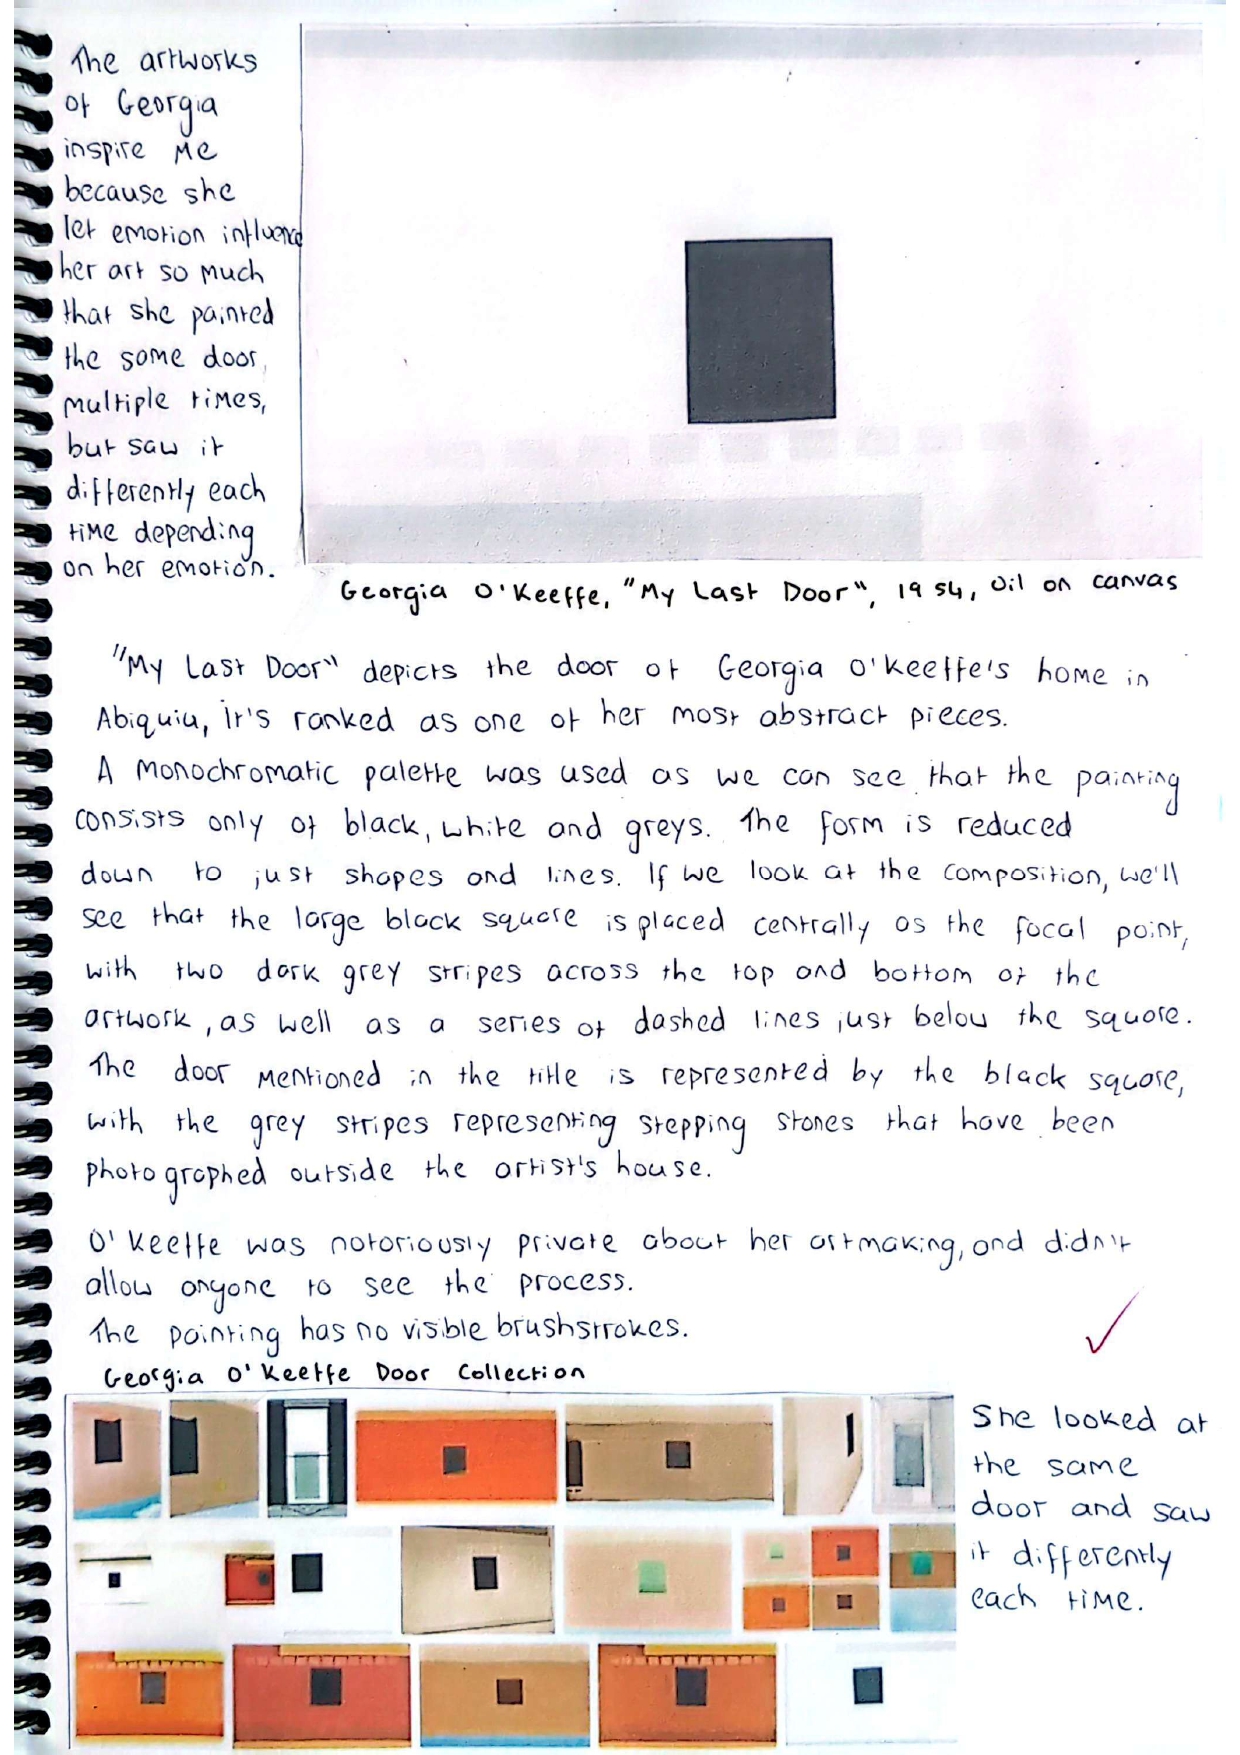 The artworks
of Georgia
inspire me
because she
let emotion influence
her art so much
that she painted
the same door
multiple times,
but saw it
differently each
time depending
on her emotion.
Georgia O'Keeffe, "My Last Door", 1954, Oil on canvas
"My Last Door" depicts the door of Georgia O'Keeffe's home in
Abiquiu, it's ranked as one of her most abstract pieces.
A monochromatic palette was used as we can see that the painting
consists only of black, white and greys. The form is reduced
down to just shapes and lines. If we look at the composition, we'll
see that the large black square is placed centrally as the focal point,
with two dark grey stripes across the top and bottom of the
artwork, as well as a series of dashed lines just below the square.
The door mentioned in the title is represented by the black square,
with the grey stripes representing stepping stones that have been
photographed outside the artist's house.
O'Keeffe was notoriously private about her artmaking, and didn't
allow anyone to see the process.
The painting has no visible brushstrokes.
Georgia O'Keeffe Door Collection
She looked at
the same
door and saw
it differently
each time.